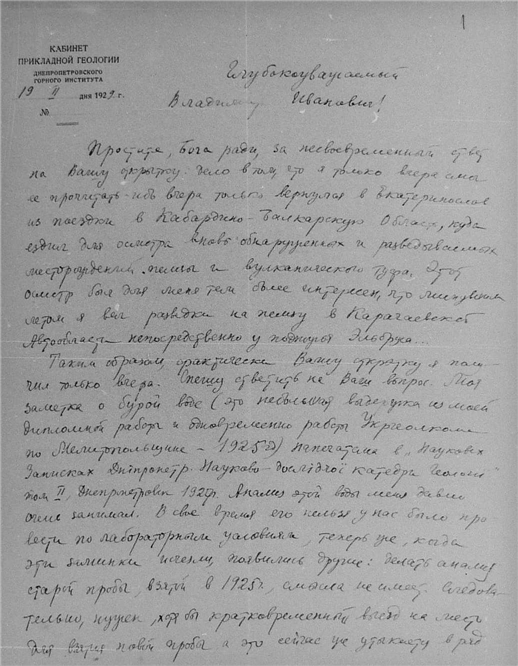 1
КАБИНЕТ
ПРИКЛАДНОЙ ГЕОЛОГИИ
ДНЕПРОПЕТРОВСКОГО
ГОРНОГО ИНСТИТУТА
19 II дня 1929 г.
№
Глубокоуважаемый
Владимир Иванович!
Простите, Бога ради, за несвоевременный ответ
на Вашу открытку: дело в том, что я только вчера смог
ее прочитать ибо вчера только вернулся в Екатеринослав
из поездки в Кабардино-Балкарскую Область, куда
ездил для осмотра вновь обнаруженных и разведываемых
месторождений пемзы и вулканического туфа. Этот
осмотр был для меня тем более интересен, что минувшим
летом я вел разведки на пемзу в Карачаевской
Автообласти непосредственно у подножья Эльбруса...
Таким образом, фактически Вашу открытку я полу-
чил только вчера. Спешу ответить на Ваш вопрос. Моя
заметка о бурой воде (это небольшая выдержка из моей
дипломной работы и одновременно работы Укргеолкома
по Мелитопольщине - 1925 г.) напечатана в „Наукових
Записках Днiпропетр. Науково-дослiдчої катедри Геологiї"
том II, Днепропетровск 192 г. Анализ этой воды меня давно
очень занимал. В свое время его нельзя у нас было про-
вести по лабораторным условиям, теперь же, когда
эти заминки исчезли, появились другие: делать анализ
старой пробы, взятой в 1925 г., смысла не имеет. Следова-
тельно, нужен, хотя бы кратковременный выезд на место
для взятия новой пробы а это сейчас же утыкается в ряд